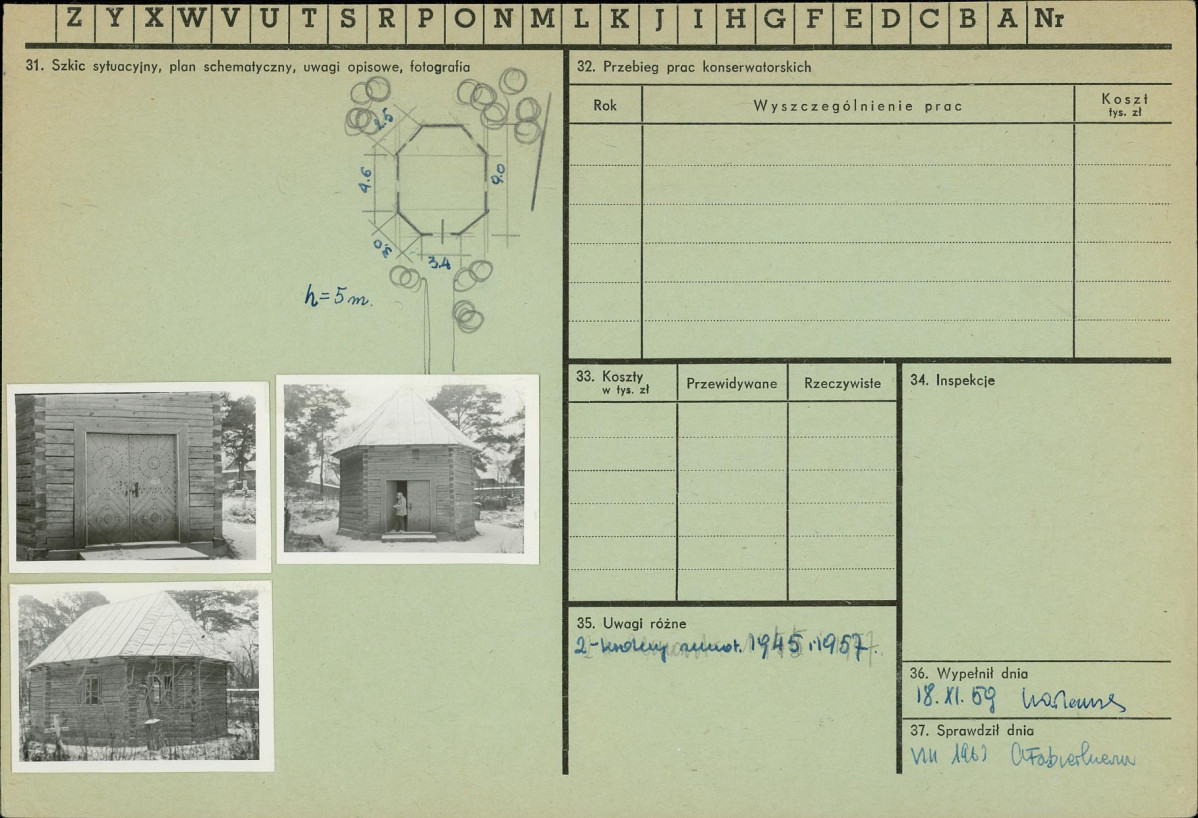 Z Y X W V U T S R P O N M L K J I H G F E D C B A Nr
31. Szkic sytuacyjny, plan schematyczny, uwagi opisowe, fotografia
2.5
4.6
9.0
3.0
3.4
h=5m.
32. Przebieg prac konserwatorskich
Rok
Wyszczególnienie prac
Koszt
tys. zł
33. Koszty
w tys. zł
Przewidywane
Rzeczywiste
34. Inspekcje
35. Uwagi różne
1945 i 1957.
36. Wypełnił dnia
18. XI. 59
37. Sprawdził dnia